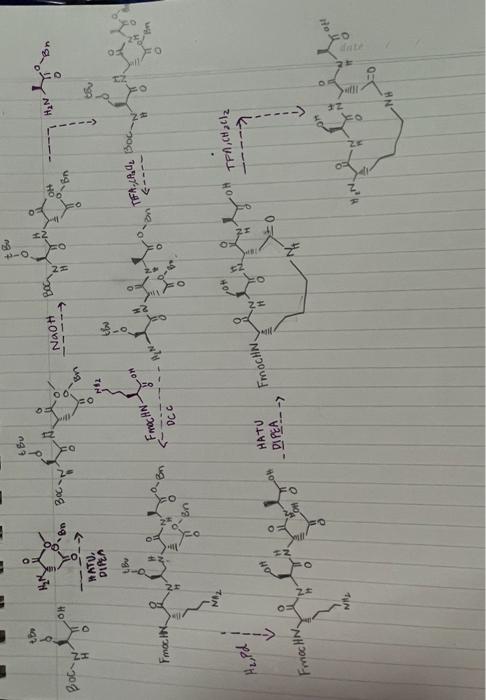 H₂N
O
O-Bn
tBu
Boc-N
H
OH
O
H₂N
O
O-Bn
O
HATU,
DIPEA
tBu
Boc-N
H
O
H
N
O
O
O-Bn
O
NaOH
tBu
BocHN
O
H
N
OH
O
O-Bn
O
tBu
Boc-N
H
O
H
N
O
O-Bn
TFA, CH₂Cl₂
tBu
H₂N
O
H
N
O
O-Bn
O
O-Bn
NH₂
FmocHN
OH
O
DCC
FmocHN
O
N
H
tBu
O
H
N
O
O-Bn
O
O-Bn
NH₂
H₂, Pd
FmocHN
O
N
H
OH
O
H
N
O
OH
O
OH
NH₂
HATU
DIPEA
FmocHN
O
N
H
OH
O
H
N
O
OH
O
NH
TFA, CH₂Cl₂
H₂N
O
N
H
OH
O
H
N
O
OH
O
N
H
date